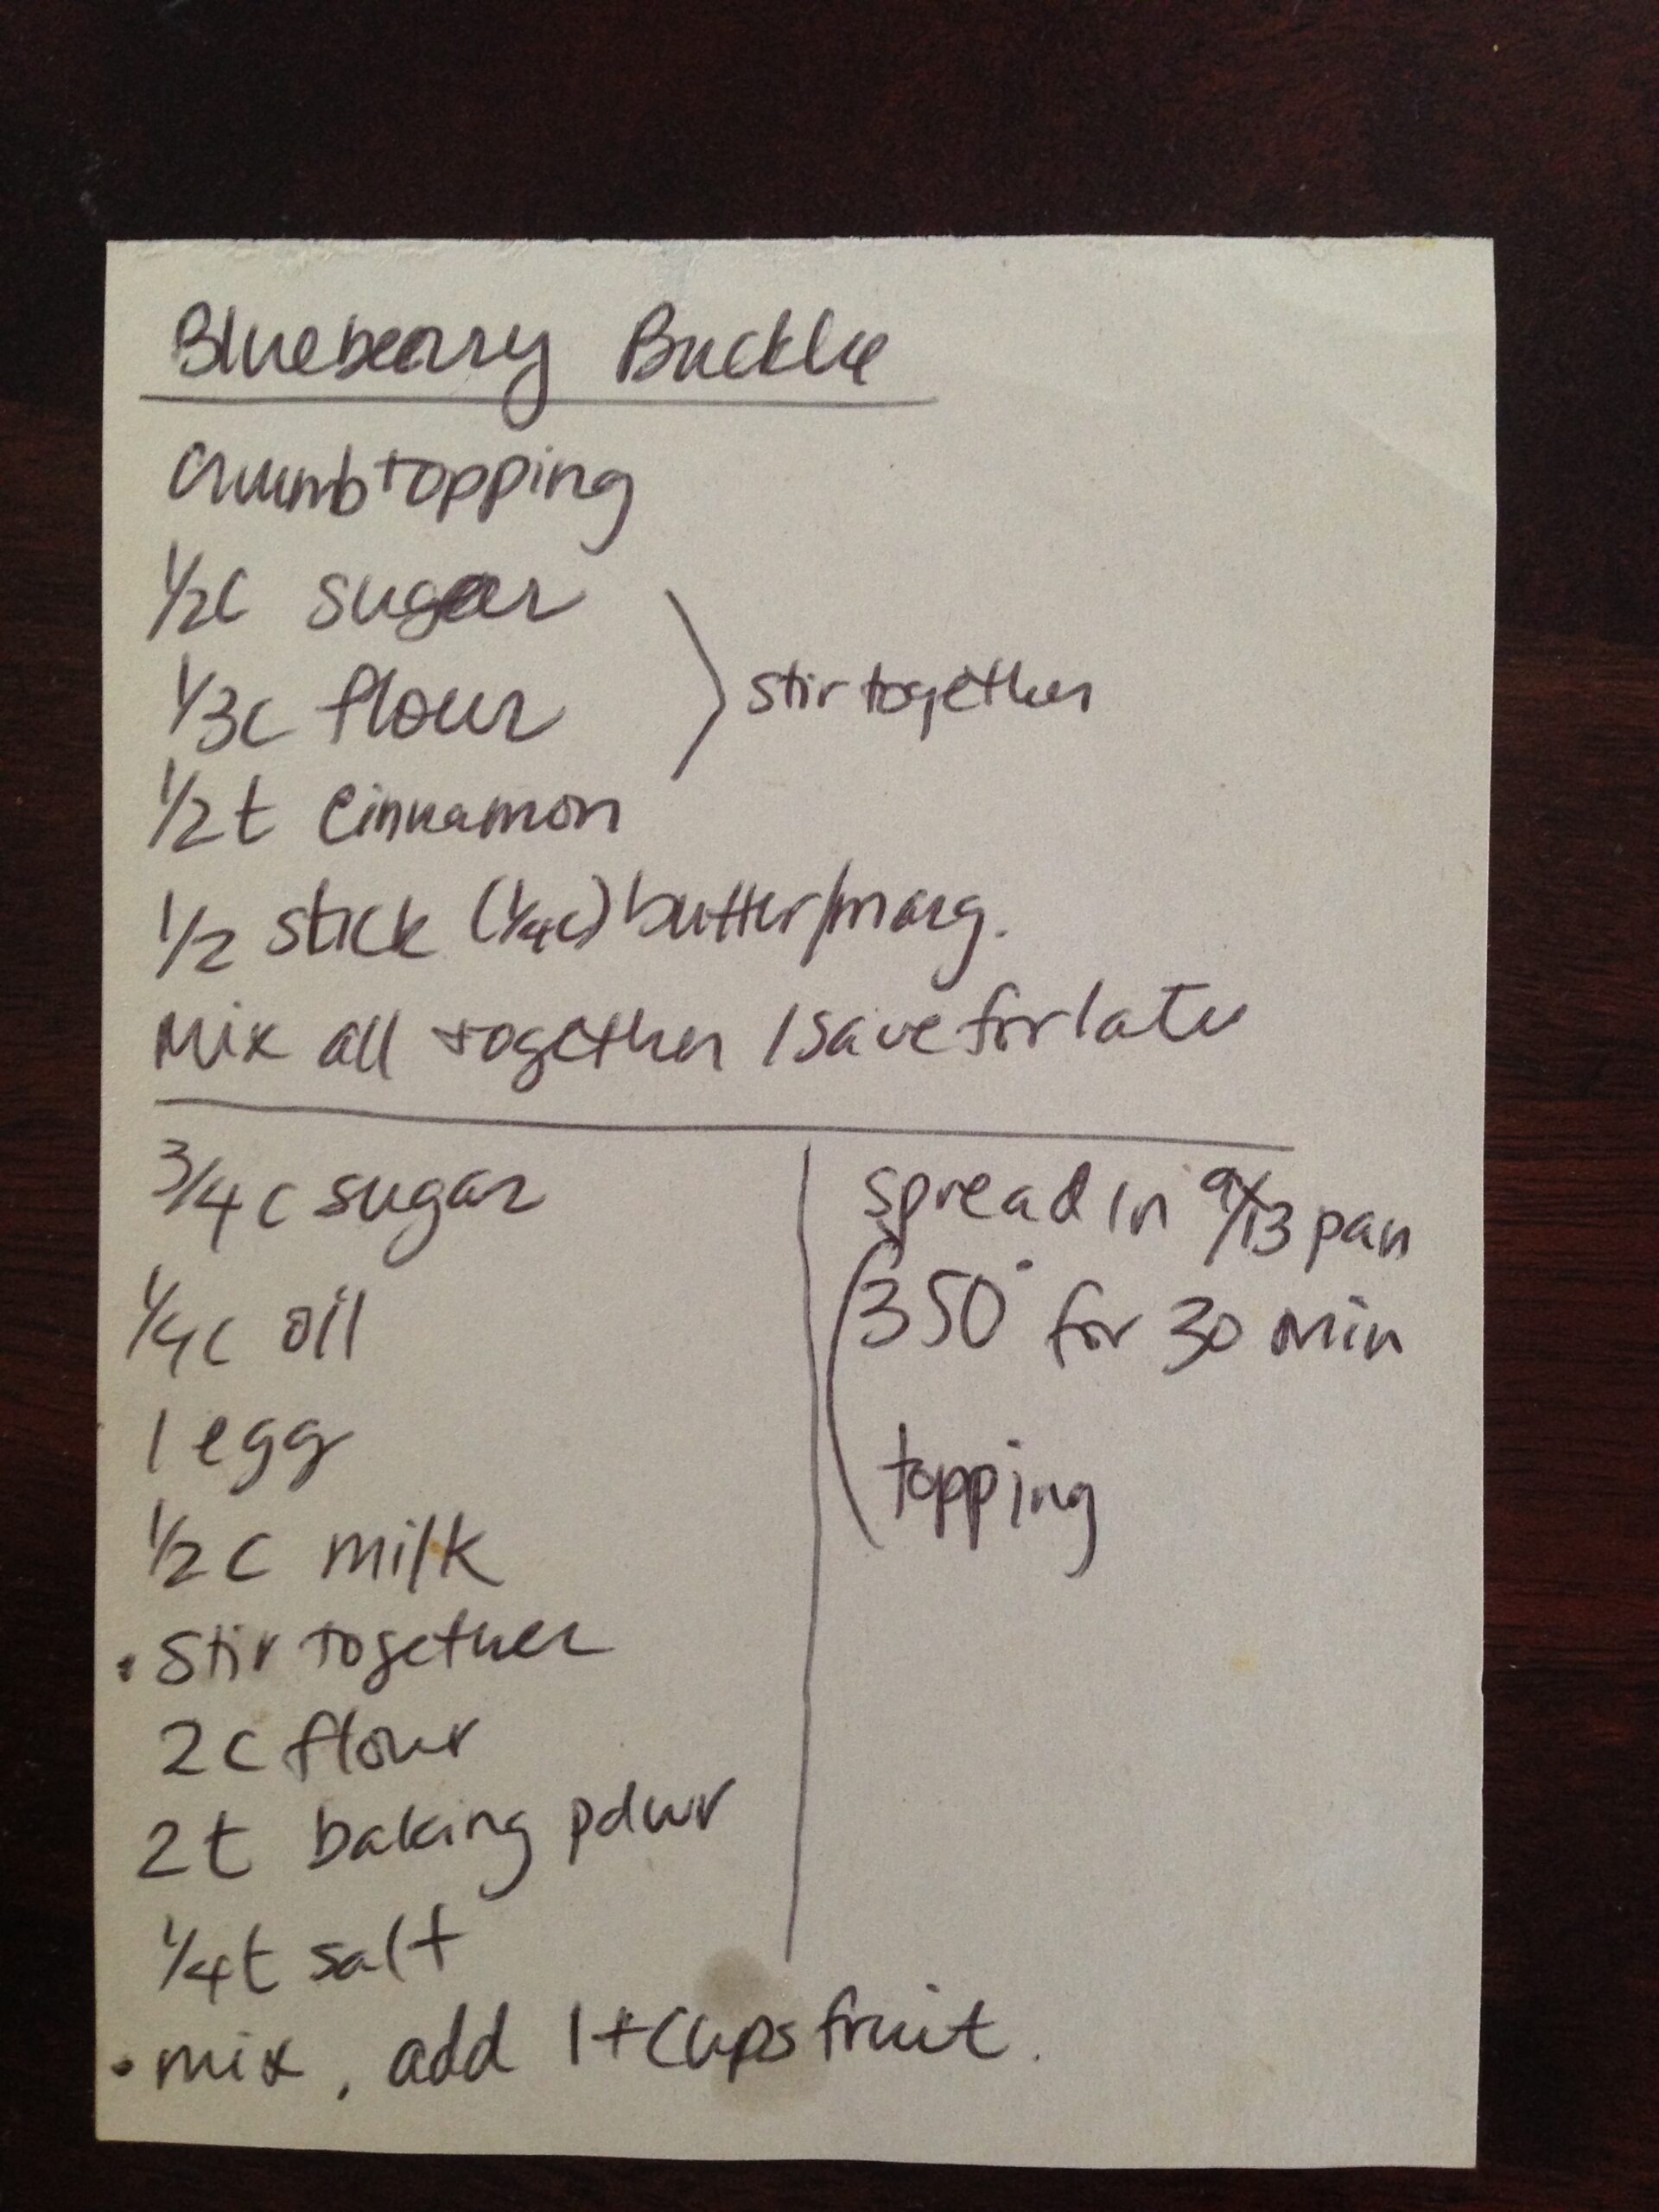 Blueberry Buckle
Crumb topping
1/2c sugar
1/3c flour
stir together
1/2t cinnamon
1/2 stick (1/4c) butter/marg.
Mix all together / save for later
3/4c sugar
1/4c oil
1 egg
1/2c milk
• stir together
2c flour
2t baking pdwr
1/4t salt
• mix, add 1+ cups fruit.
spread in 9x13 pan
350° for 30 min
topping